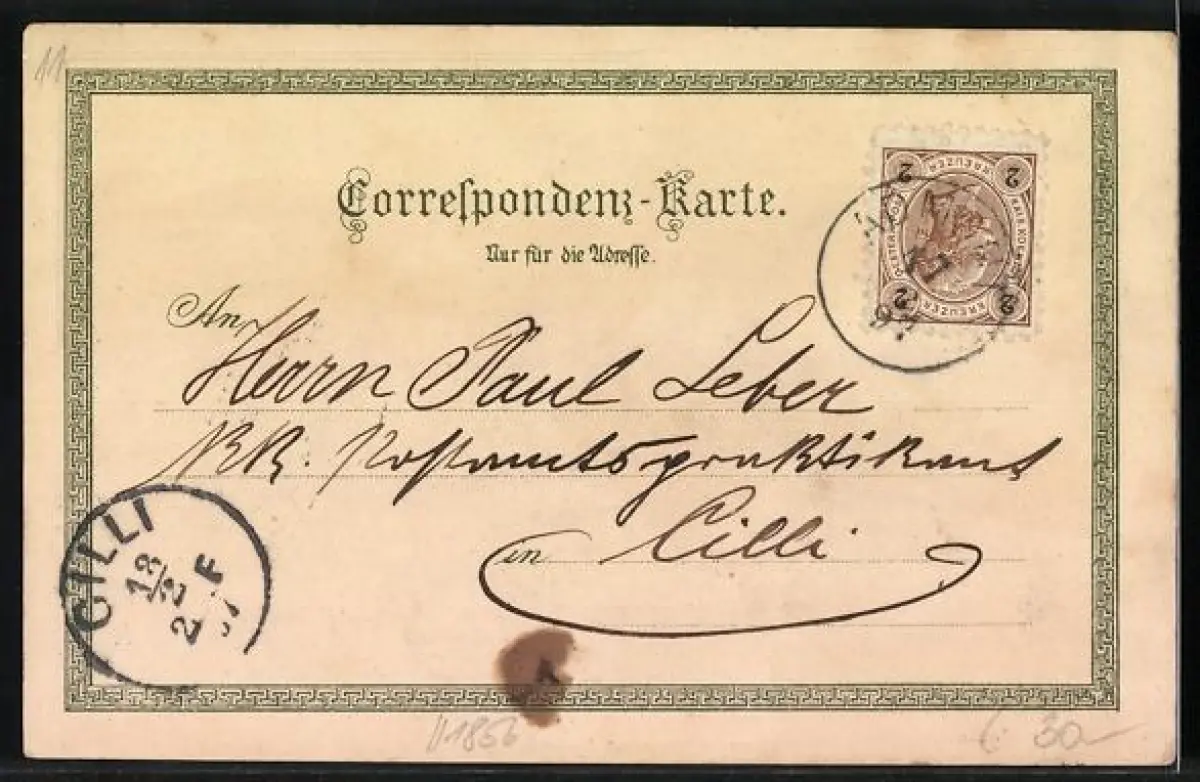 11
Correſpondenz-Karte.
Nur für die Adreſſe.
2 KREUZER 2
2 KREUZER 2
An
Herrn Paul Leber
KK. Postamtspraktikant
in Cilli
CILLI
18/2
2 F
1856
30